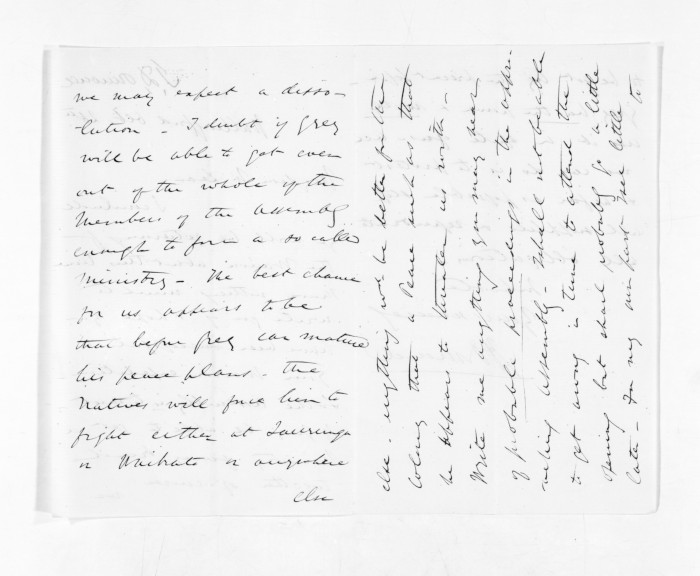 we may expect a disso-
lution - I doubt if Grey
will be able to get even
out of the whole of the
Members of the Assembly
enough to form a so called
Ministry - The best chance
for us appears to be
that before Grey can mature
his peace plans - the
Natives will force him to
fight either at Tauranga
or Waikato or anywhere
else
else - anything wd be better for the
Colony than a Peace such as that
he appears to threaten us with -
Write me anything you may hear
of probable proceedings in the appro-
aching Assembly - I shall not be able
to get away in time to attend the
opening but shall probably go a little
later - For my own part I see little to